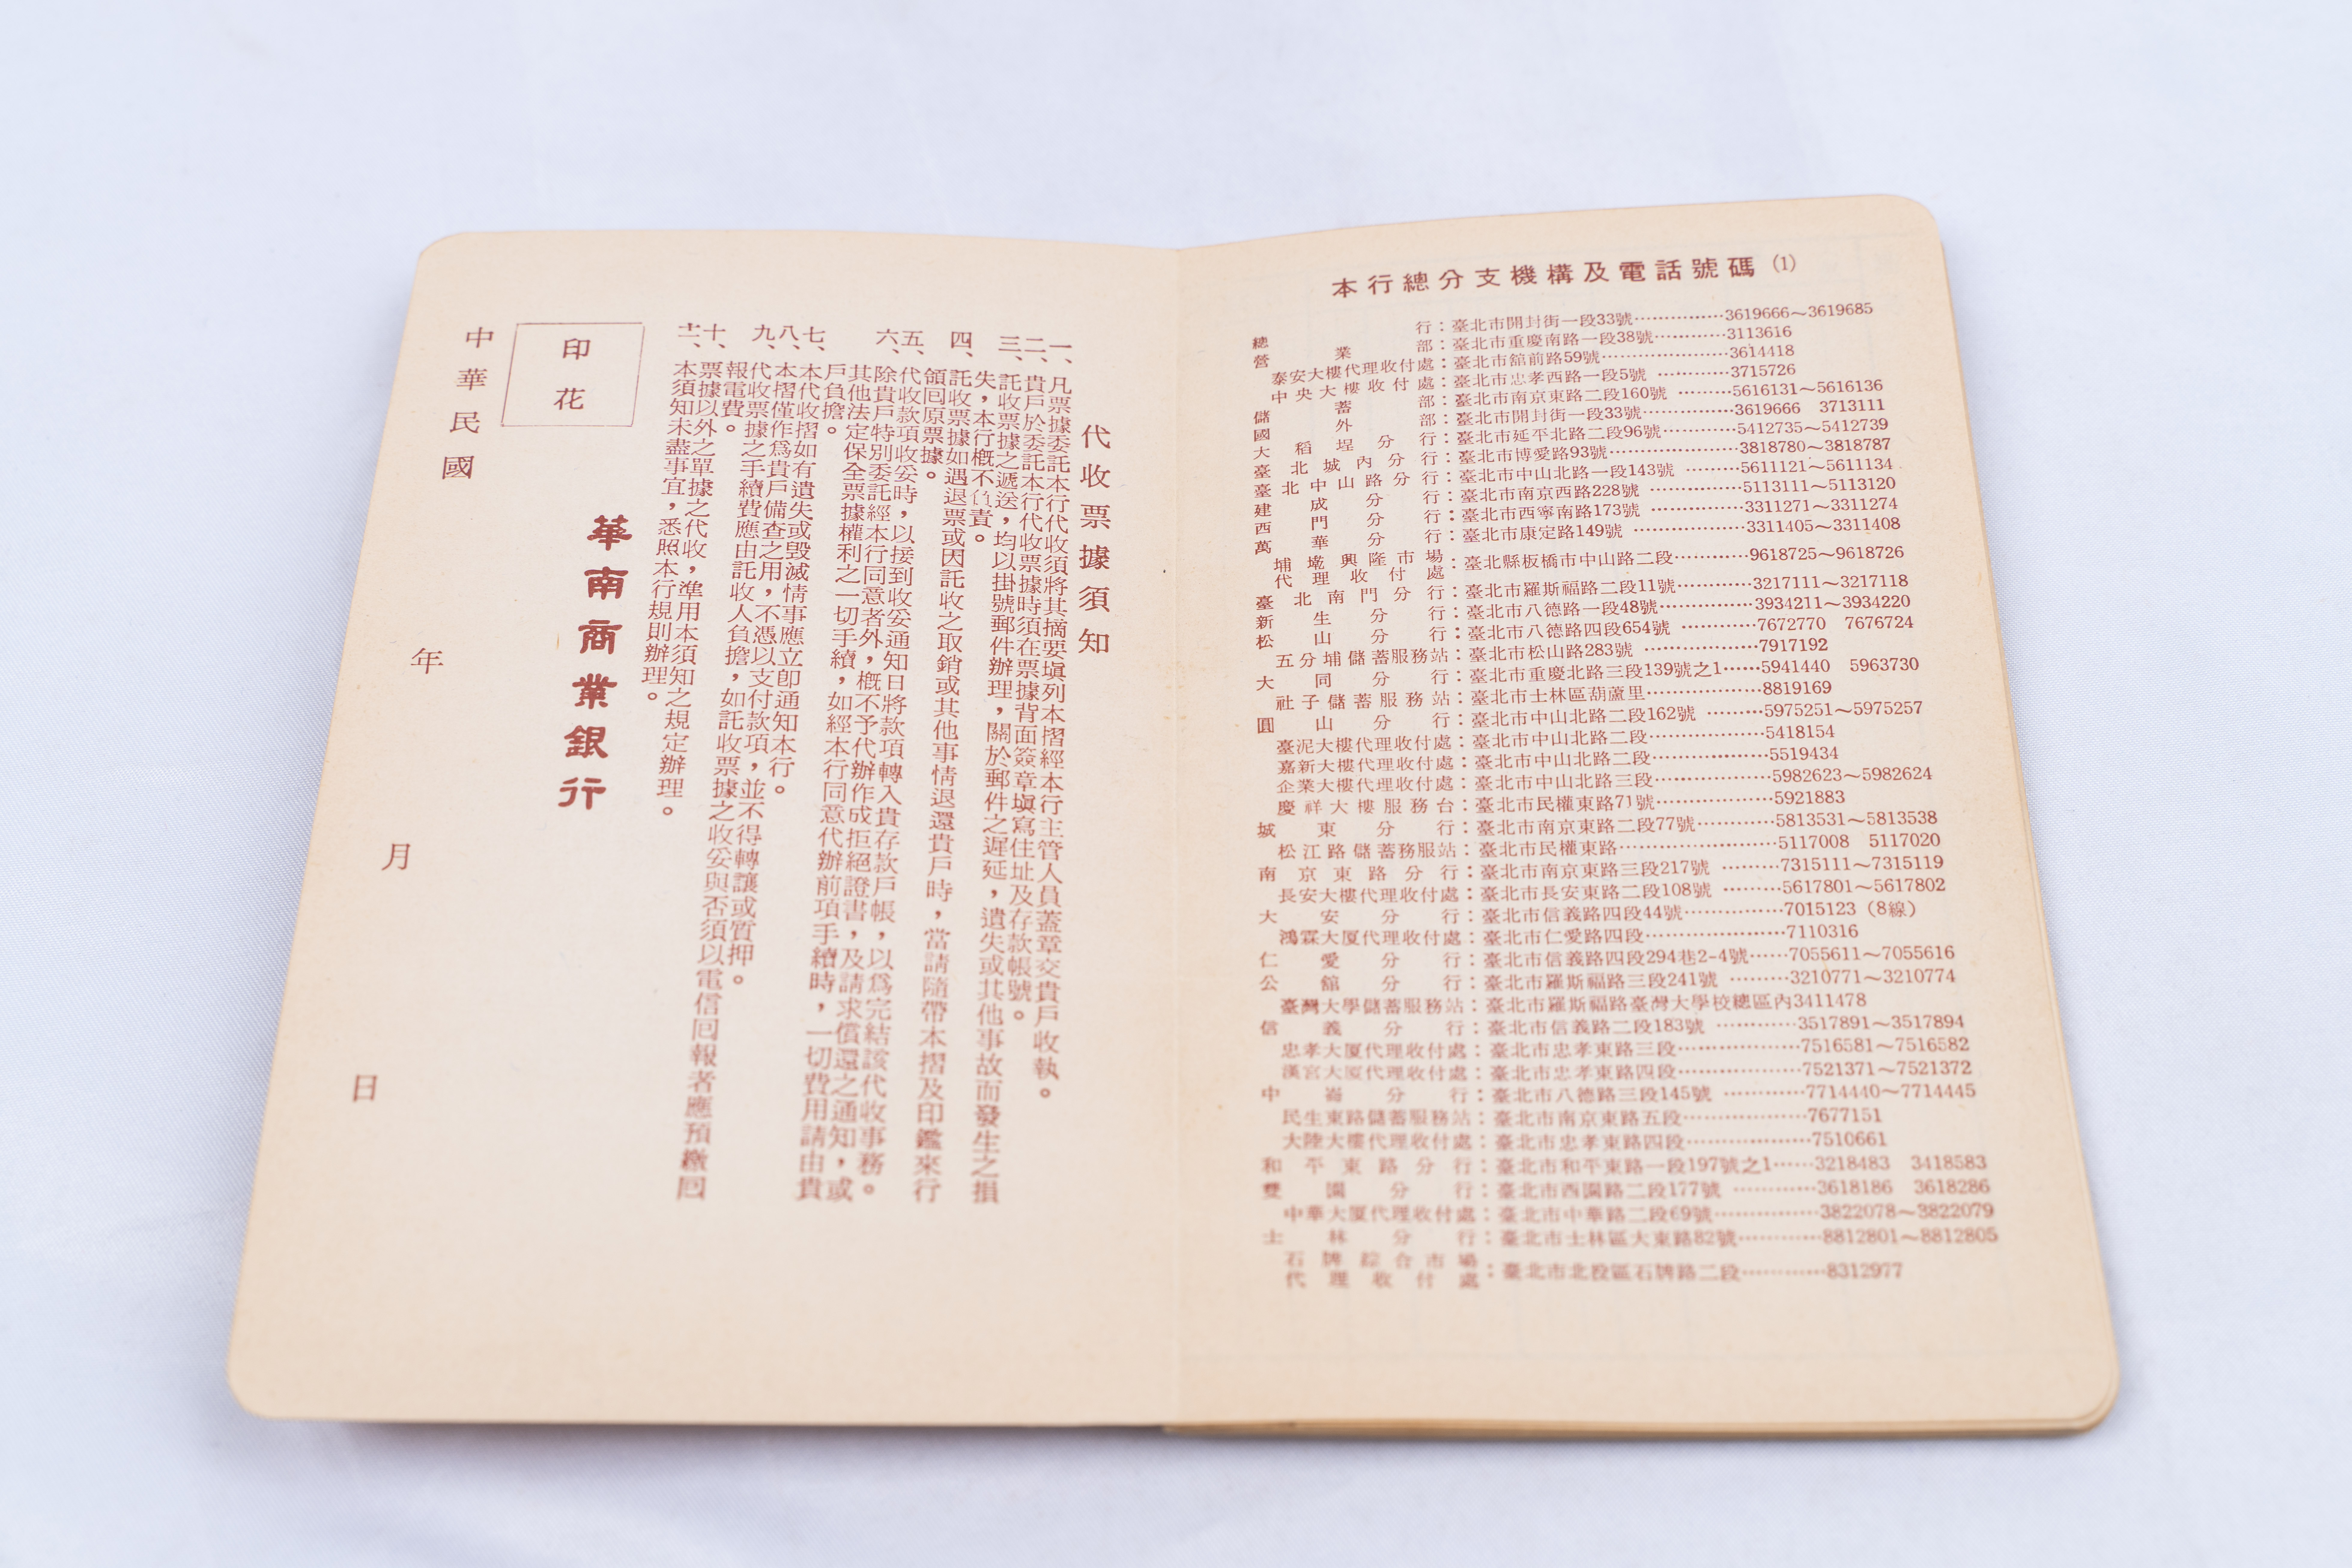 代收票據須知
一、凡票據委託本行代收須將其摘要塡列本摺經本行主管人員蓋章交貴戶收執。
二、貴戶於委託本行代收票據時須在票據背面簽章塡寫住址及存款帳號。
三、託收票據之遞送，均以掛號郵件辦理，關於郵件之遲延，遺失或其他事故而發生之損
失，本行槪不負責。
四、託收票據如遇退票或因託收之取銷或其他事情退還貴戶時，當請隨帶本摺及印鑑來行
領回原票據。
五、代收款項收妥時，以接到收妥通知日將款項轉入貴存款戶帳，以爲完結該代收事務。
六、除貴戶特別委託經本行同意者外，槪不予代辦作成拒絕證書，及請求償還之通知，或
其他法定保全票據權利之一切手續，如經本行同意代辦前項手續時，一切費用請由貴
戶負擔。
七、本代收摺如有遺失或毁滅情事應立卽通知本行。
八、本摺僅作爲貴戶備查之用，不憑以支付款項，並不得轉讓或質押。
九、代收票據之手續費應由託收人負擔，如託收票據之收妥與否須以電信回報者應預繳回
報電費。
十、票據以外之單據之代收，準用本須知之規定辦理。
十一、本須知未盡事宜，悉照本行規則辦理。
華南商業銀行
印花
中華民國 年 月 日
本行總分支機構及電話號碼 (1)
總行：臺北市開封街一段33號……………3619666～3619685
營業部：臺北市重慶南路一段38號…………3113616
泰安大樓代理收付處：臺北市舘前路59號…………………3614418
中央大樓收付處：臺北市忠孝西路一段5號…………3715726
儲蓄部：臺北市南京東路二段160號………5616131～5616136
國外部：臺北市開封街一段33號……………3619666 3713111
大稻埕分行：臺北市延平北路二段96號…………5412735～5412739
臺北城內分行：臺北市博愛路93號…………………3818780～3818787
臺北中山路分行：臺北市中山北路一段143號………5611121～5611134
建成分行：臺北市南京西路228號……………5113111～5113120
西門分行：臺北市西寧南路173號……………3311271～3311274
萬華分行：臺北市康定路149號………………3311405～3311408
埔墘興隆市場
代理收付處：臺北縣板橋市中山路二段…………9618725～9618726
臺北南門分行：臺北市羅斯福路二段11號…………3217111～3217118
新生分行：臺北市八德路一段48號……………3934211～3934220
松山分行：臺北市八德路四段654號…………7672770 7676724
五分埔儲蓄服務站：臺北市松山路283號………………7917192
大同分行：臺北市重慶北路三段139號之1……5941440 5963730
社子儲蓄服務站：臺北市士林區葫蘆里………………8819169
圓山分行：臺北市中山北路二段162號………5975251～5975257
臺泥大樓代理收付處：臺北市中山北路二段………………5418154
嘉新大樓代理收付處：臺北市中山北路二段………………5519434
企業大樓代理收付處：臺北市中山北路三段………………5982623～5982624
慶祥大樓服務台：臺北市民權東路71號………………5921883
城東分行：臺北市南京東路二段77號…………5813531～5813538
松江路儲蓄務服站：臺北市民權東路……………………5117008 5117020
南京東路分行：臺北市南京東路三段217號………7315111～7315119
長安大樓代理收付處：臺北市長安東路二段108號………5617801～5617802
大安分行：臺北市信義路四段44號……………7015123（8線）
鴻霖大厦代理收付處：臺北市仁愛路四段…………………7110316
仁愛分行：臺北市信義路四段294巷2-4號……7055611～7055616
公舘分行：臺北市羅斯福路三段241號………3210771～3210774
臺灣大學儲蓄服務站：臺北市羅斯福路臺灣大學校總區內3411478
信義分行：臺北市信義路二段183號…………3517891～3517894
忠孝大厦代理收付處：臺北市忠孝東路三段………………7516581～7516582
漢宮大厦代理收付處：臺北市忠孝東路四段………………7521371～7521372
中崙分行：臺北市八德路三段145號…………7714440～7714445
民生東路儲蓄服務站：臺北市南京東路五段………………7677151
大陸大樓代理收付處：臺北市忠孝東路四段………………7510661
和平東路分行：臺北市和平東路一段197號之1……3218483 3418583
雙園分行：臺北市西園路二段177號…………3618186 3618286
中華大厦代理收付處：臺北市中華路二段69號……………3822078～3822079
士林分行：臺北市士林區大東路82號…………8812801～8812805
石牌綜合市場
代理收付處：臺北市北投區石牌路二段…………8312977